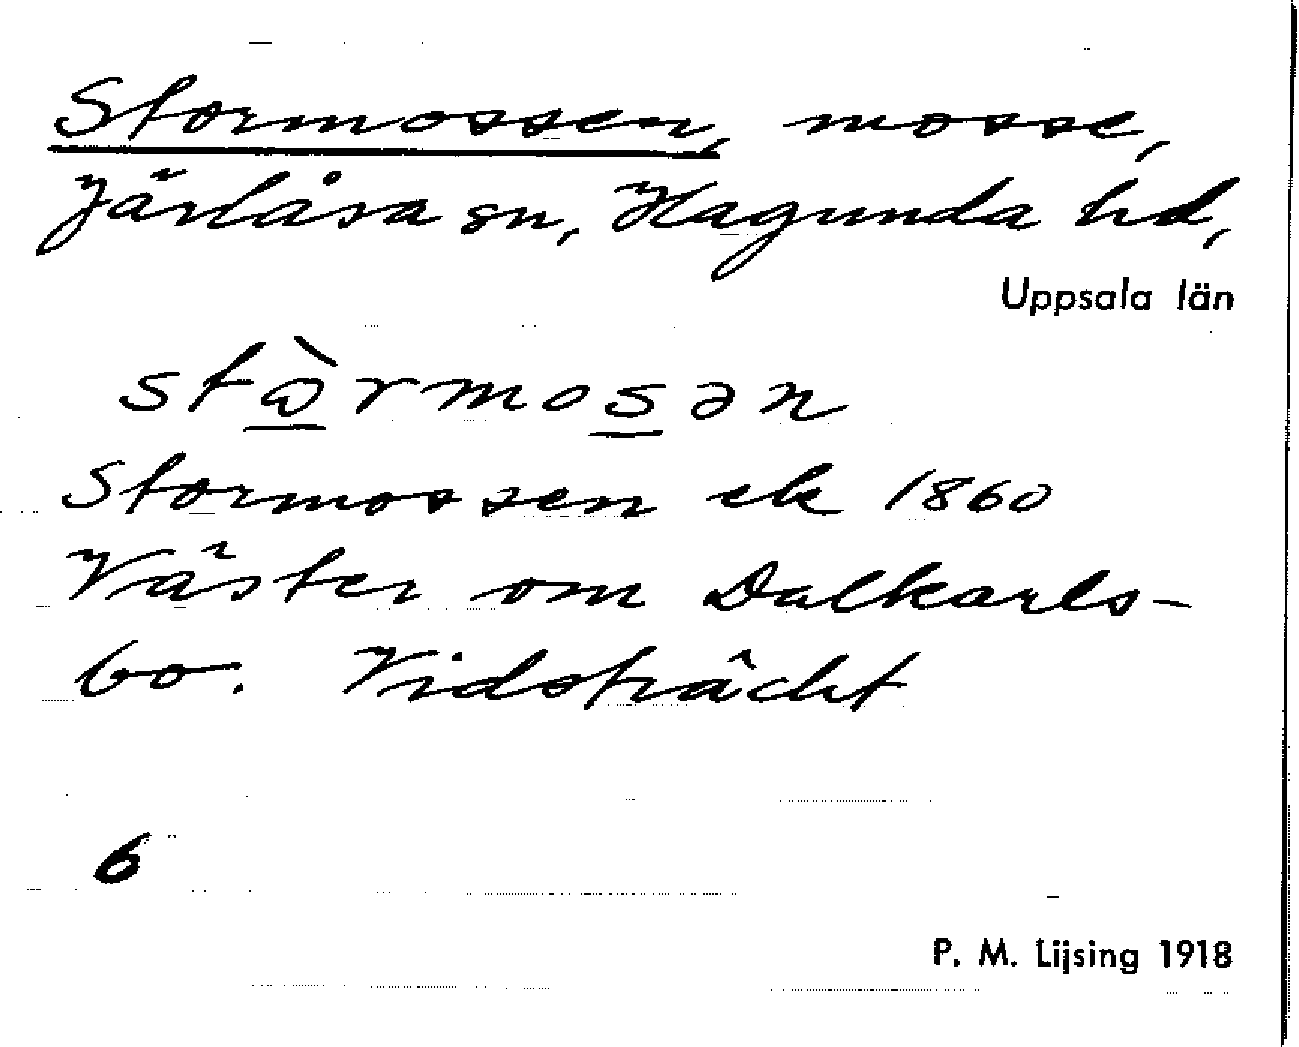 Stormossen, mosse,
Järlåsa sn, Hagunda hd,
Uppsala län
stɷ̀rmosən
Stormossen ek 1860
Väster om Dalkarls-
bo. Vidsträckt
6
P. M. Lijsing 1918